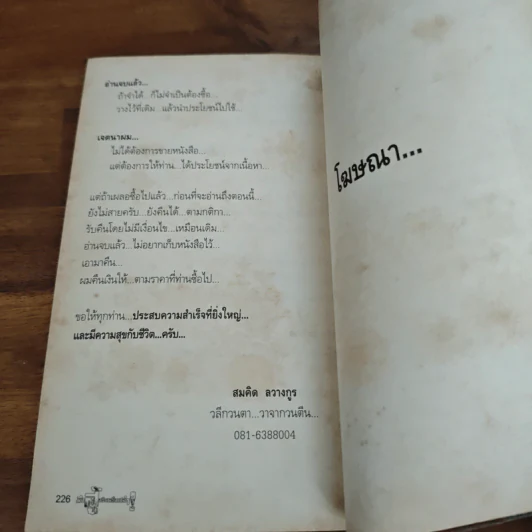 อ่านจบแล้ว...
ถ้าจำได้ ก็ไม่จำเป็นต้องซื้อ...
วางไว้ที่เดิม...แล้วนำประโยชน์ไปใช้...
เจตนาผม...
ไม่ได้ต้องการขายหนังสือ...
แต่ต้องการให้ท่าน...ได้ประโยชน์จากเนื้อหา...
แต่ถ้าเผลอซื้อไปแล้ว...ก่อนที่จะอ่านถึงตอนนี้...
ยังไม่สายครับ...ยังคืนได้...ตามกติกา...
รับคืนโดยไม่มีเงื่อนไข...เหมือนเดิม...
อ่านจบแล้ว...ไม่อยากเก็บหนังสือไว้...
เอามาคืน...
ผมคืนเงินให้...ตามราคาที่ท่านซื้อไป...
ขอให้ทุกท่าน...ประสบความสำเร็จที่ยิ่งใหญ่...
และมีความสุขกับชีวิต...ครับ...
สมคิด ลวางกูร
วลีกวนตา...วาจากวนตีน...
081-6388004
226
โฆษณา...